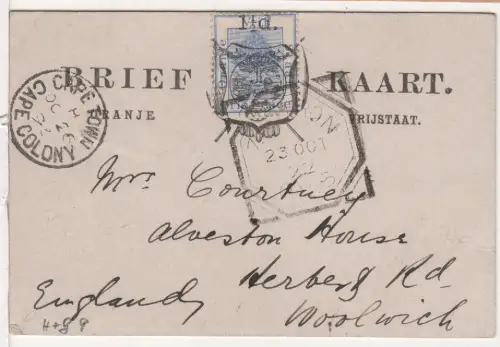 1½d.
BRIEF KAART.
ORANJE VRIJSTAAT.
CAPE TOWN
CAPE COLONY
OC 26
92
23 OCT
92
Mrs Courtney
Alveston House
Herbert Rd.
Woolwich
England